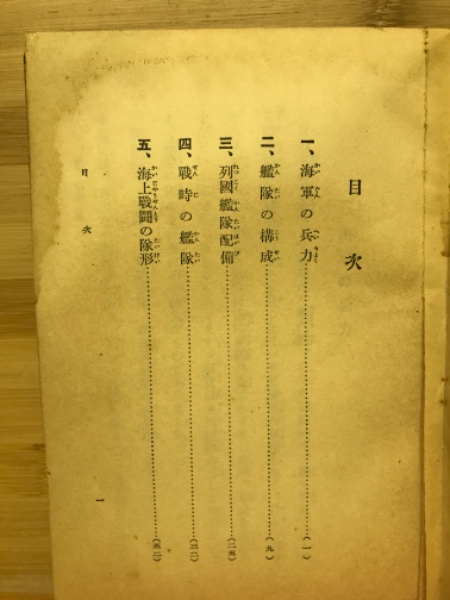 目次
一、海軍の兵力……(一)
二、艦隊の構成……(九)
三、列國艦隊配備……(二五)
四、戰時の艦隊……(三三)
五、海上戰鬪の隊形……
目次
一